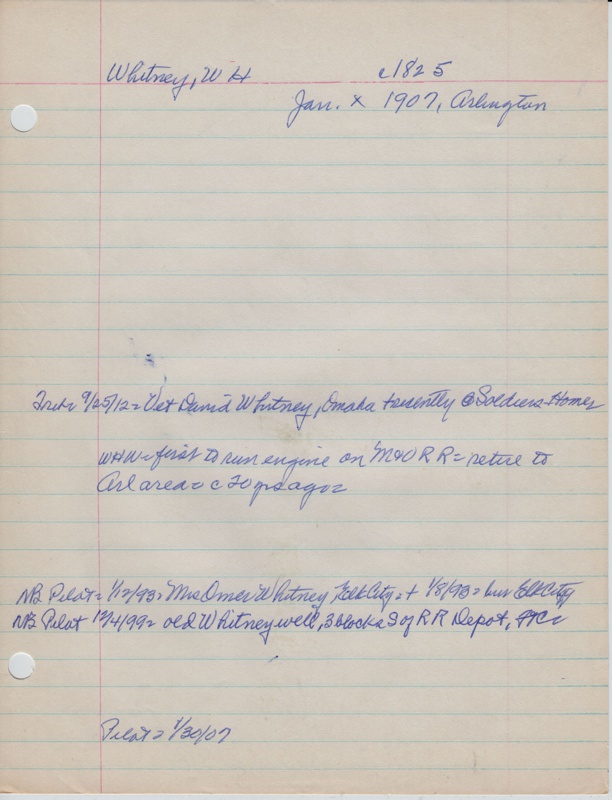 Whitney, W H c1825
Jan. x 1907, Arlington
9/25/12 = Vet David Whitney, Omaha + recently @ Soldiers Homes
WHW = first to run engine on M&O RR = retire to
Arl area = c 20 yrs ago =
NB Pilot = 1/12/93 = Mrs Omer Whitney Elk City = + 1/8/93 = bur Elk City
NB Pilot 12/4/99 = old Whitney well, 3 blocks S of RR Depot,
Pilot = 1/30/07